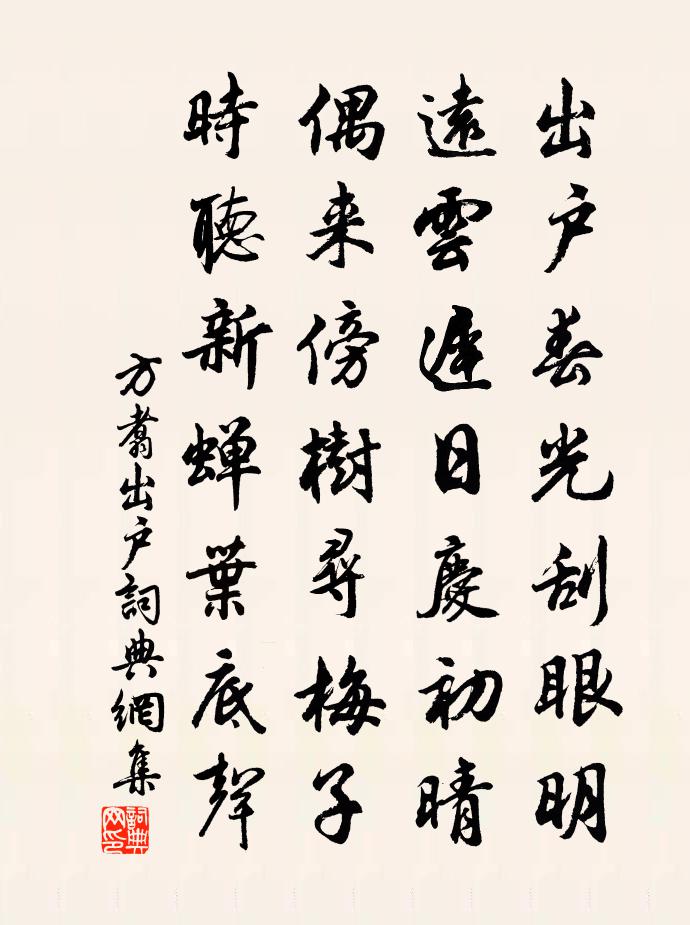 出户春光刮眼明
遠雲遲日慶初晴
偶来傍樹尋梅子
時聽新蝉葉底聲
方翥出户詞典網集
詞典网印